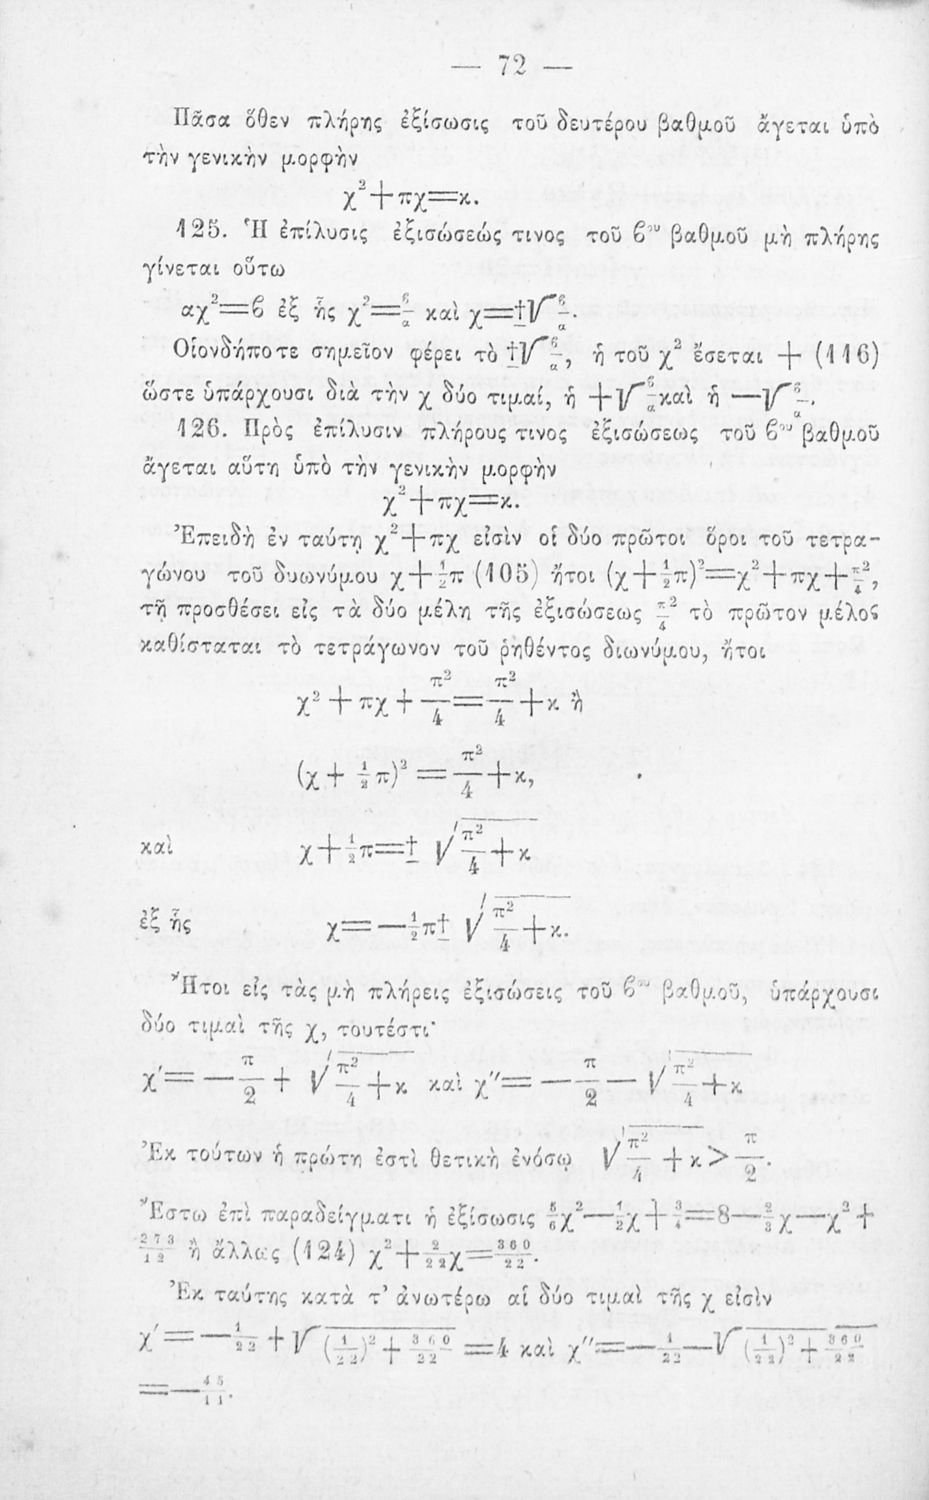 — 72 —
Πᾶσα ὅθεν πλήρης ἐξίσωσις τοῦ δευτέρου βαθμοῦ ἄγεται ὑπὸ
τὴν γενικὴν μορφὴν
χ²+πχ=κ.
125. Ἡ ἐπίλυσις ἐξισώσεώς τινος τοῦ ϐ^ου βαθμοῦ μὴ πλήρης
γίνεται οὕτω
αχ²=ϐ ἐξ ἧς χ²=ϐ/α καὶ χ=±√ϐ/α.
Οἱονδήποτε σημεῖον φέρει τὸ ±√ϐ/α, ἡ τοῦ χ² ἔσεται + (116)
ὥστε ὑπάρχουσι διὰ τὴν χ δύο τιμαί, ἡ +√ϐ/α καὶ ἡ —√ϐ/α.
126. Πρὸς ἐπίλυσιν πλήρους τινος ἐξισώσεως τοῦ ϐ^ου βαθμοῦ
ἄγεται αὕτη ὑπὸ τὴν γενικὴν μορφὴν
χ²+πχ=κ.
Ἐπειδὴ ἐν ταύτῃ χ²+πχ εἰσὶν οἱ δύο πρῶτοι ὅροι τοῦ τετρα-
γώνου τοῦ δυωνύμου χ+½π (105) ἤτοι (χ+½π)²=χ²+πχ+π²/4,
τῇ προσθέσει εἰς τὰ δύο μέλη τῆς ἐξισώσεως π²/4 τὸ πρῶτον μέλος
καθίσταται τὸ τετράγωνον τοῦ ῥηθέντος διωνύμου, ἤτοι
χ²+πχ+π²/4=π²/4+κ ἢ
(χ+½π)²=π²/4+κ,
καὶ χ+½π=±√π²/4+κ
ἐξ ἧς χ=—½π±√π²/4+κ.
Ἤτοι εἰς τὰς μὴ πλήρεις ἐξισώσεις τοῦ ϐ^ου βαθμοῦ, ὑπάρχουσι
δύο τιμαὶ τῆς χ, τουτέστι·
χ′=—π/2+√π²/4+κ καὶ χ″=—π/2—√π²/4+κ
Ἐκ τούτων ἡ πρώτη ἐστὶ θετικὴ ἐνόσῳ √π²/4+κ>π/2.
Ἔστω ἐπὶ παραδείγματι ἡ ἐξίσωσις 5/6χ²—½χ+¾=8—⅔χ—χ²+
273/12 ἢ ἄλλως (124) χ²+2/22χ=360/22.
Ἐκ ταύτης κατὰ τ' ἀνωτέρω αἱ δύο τιμαὶ τῆς χ εἰσὶν
χ′=—1/22+√(1/22)²+360/22=4 καὶ χ″=—1/22—√(1/22)²+360/22
=—45/11.